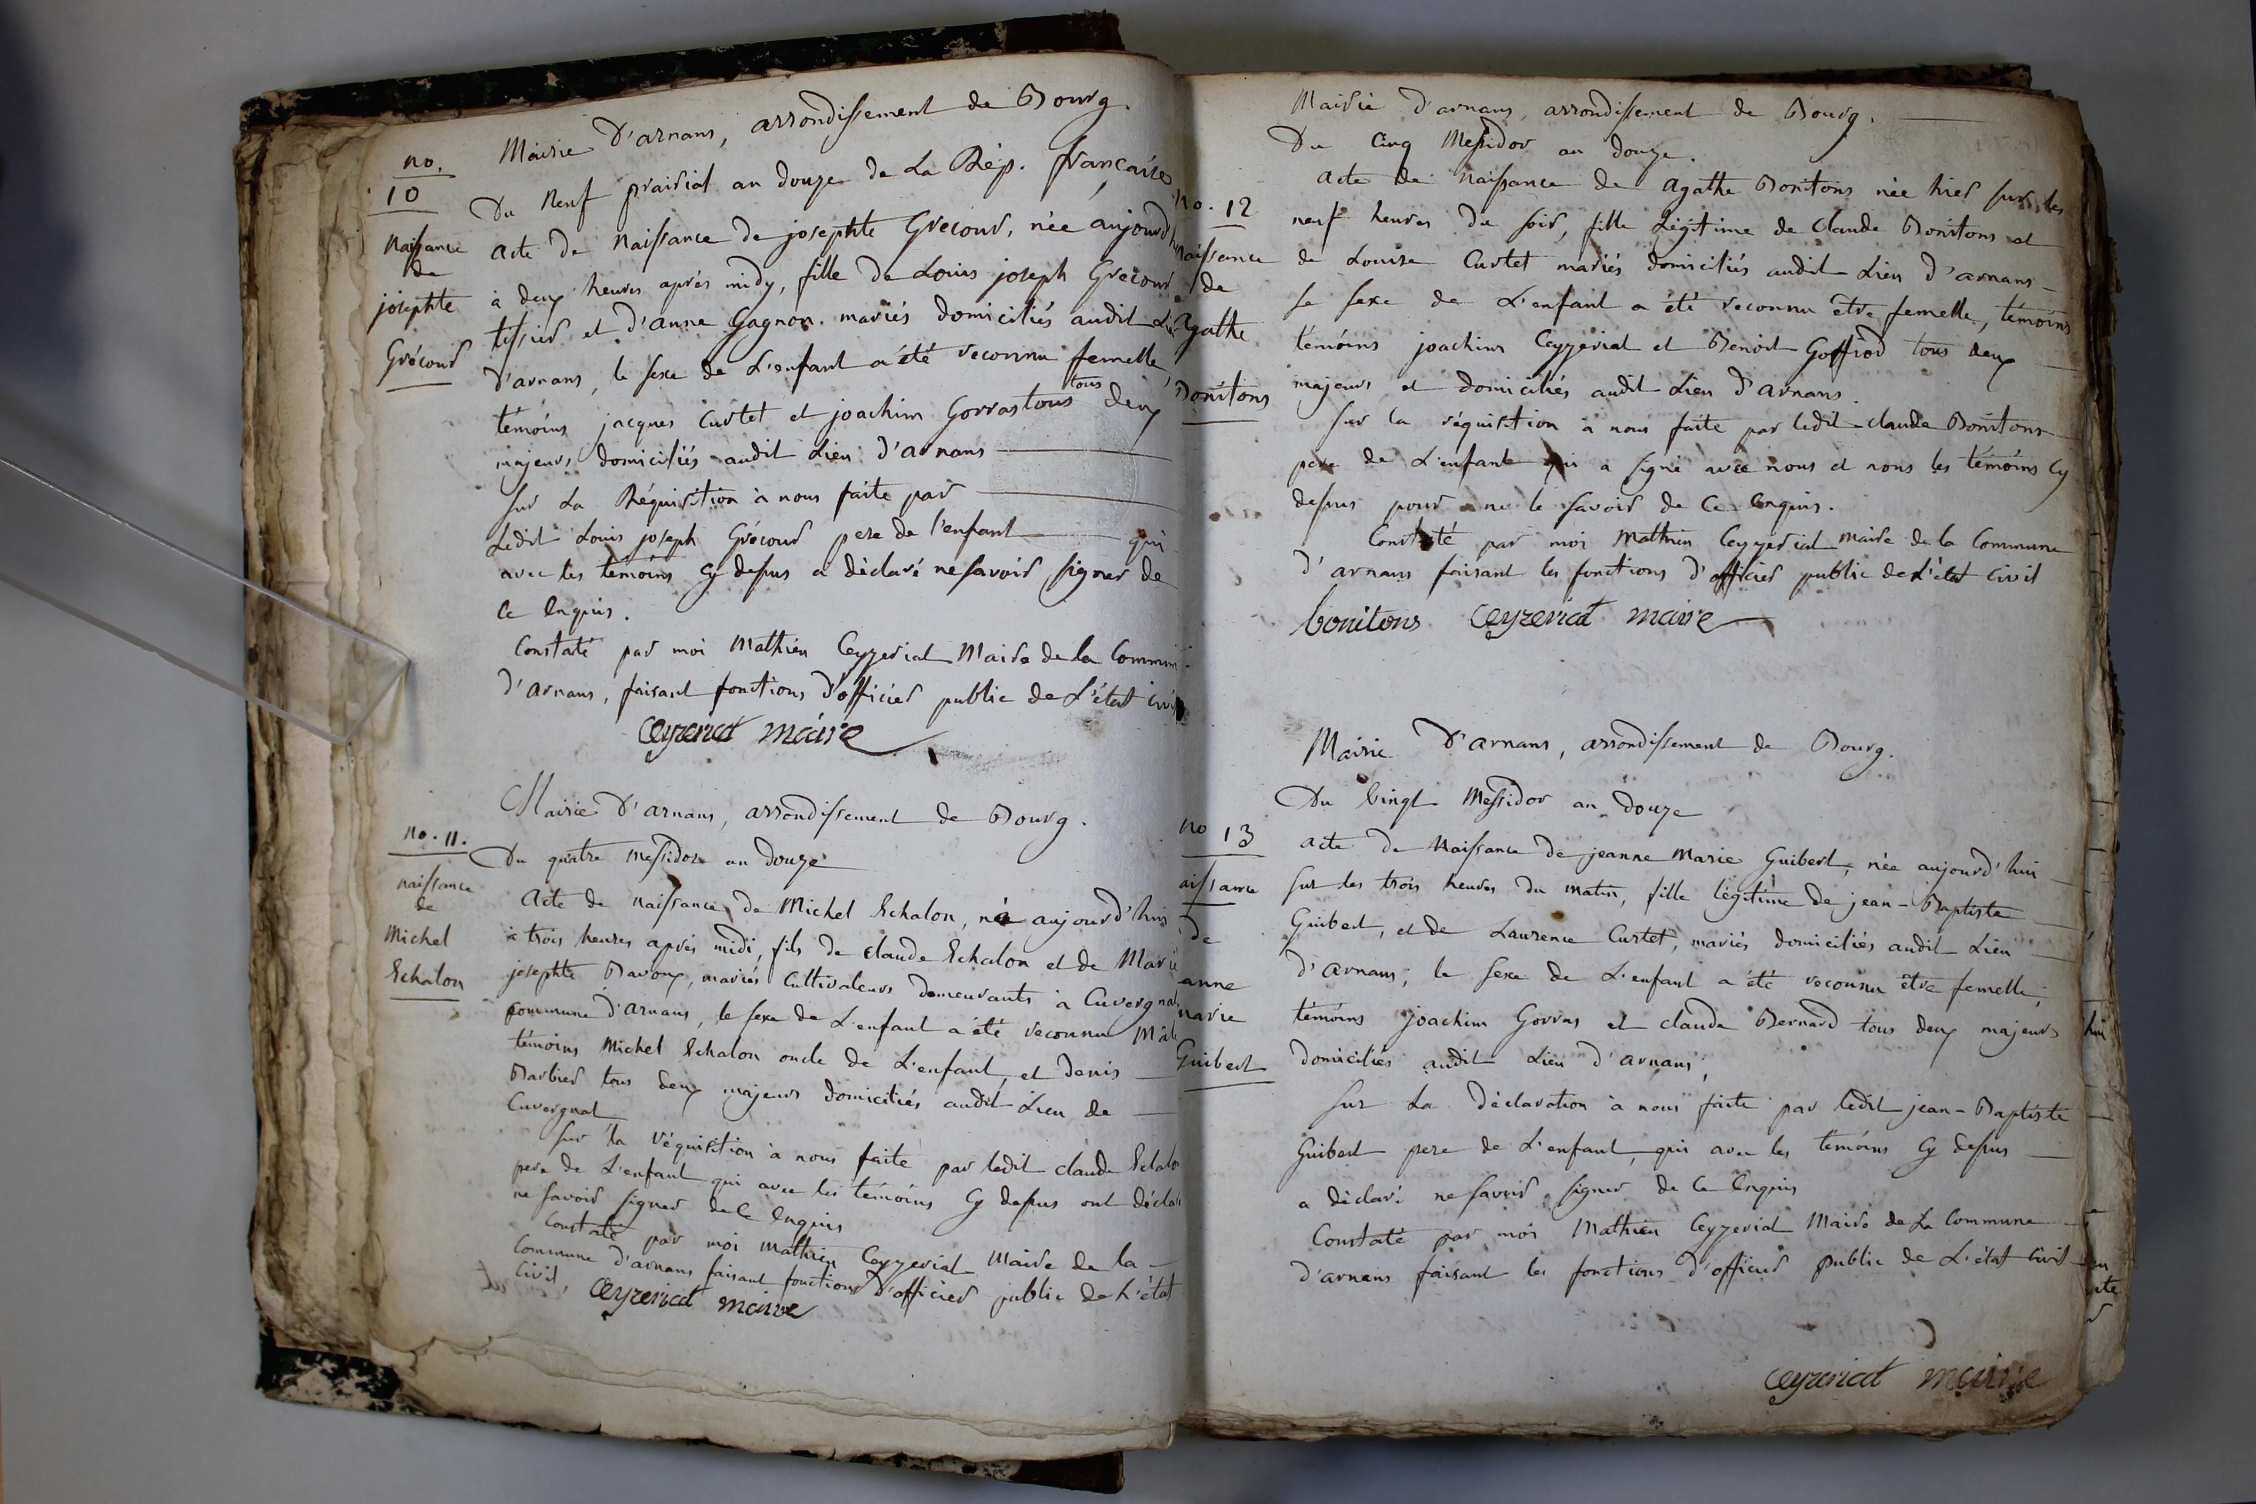 Mairie d'arnans, arrondissement de Bourg.
no.
10
Du neuf prairial an douze de la Rép. française
naissance
de
josephte
Grécour
acte de naissance de josephte Grecour, née aujourd'hui
à deux heures après midy, fille de Louis joseph Grécour
tissier et d'anne Gagnon mariés domiciliés audit Lieu
d'arnans, le sexe de L'enfant a été reconnu femelle,
témoins jacques Curtet et joachim Gorras tous tous deux
majeurs domiciliés audit Lieu d'arnans
sur La Réquisition à nous faite par
Ledit Louis joseph Grécour pere de l'enfant qui
avec les témoins cy dessus a déclaré ne savoir signer de
ce enquis.
Constaté par moi Mathieu Ceyzeriat Maire de la Commune
d'arnans, faisant fonctions d'officier public de L'état civil
Ceyzeriat maire
Mairie d'arnans, arrondissement de Bourg.
no. 11.
Du quatre messidor an douze
naissance
de
Michel
Echalon
Acte de naissance de Michel Echalon, né aujourd'hui
à trois heures après midi, fils de claude Echalon et de Marie
josephte Bavoux, mariés cultivateurs demeurants à Cuvergnat
commune d'arnans, le sexe de L'enfant a été reconnu Mâle
témoins Michel Echalon oncle de L'enfant et denis
Barbier tous deux majeurs domiciliés audit Lieu de
Cuvergnat
sur la réquisition à nous faite par ledit claude Echalon
pere de L'enfant qui avec les témoins cy dessus ont déclaré
ne savoir signer de ce enquis
Constaté par moi Mathieu Ceyzeriat Maire de la
Commune d'arnans faisant fonctions d'officier public de L'état
civil, Ceyzeriat maire
Mairie d'arnans, arrondissement de Bourg.
Du cinq Messidor an douze.
no. 12
naissance
de
Agathe
Bonitons
acte de naissance de agathe Bonitons née hier sur les
neuf heures du soir, fille Légitime de claude Bonitons et
de Louise Curtet mariés domiciliés audit Lieu d'arnans
le sexe de L'enfant a été reconnu être femelle, témoins
témoins joachim Ceyzeriat et Benoit Goffrod tous deux
majeurs et domiciliés audit Lieu d'arnans.
sur la réquisition à nous faite par ledit claude Bonitons
pere de L'enfant qui a signé avec nous et nons les témoins cy
dessus pour ne le savoir de ce enquis.
Constaté par moi Mathieu Ceyzeriat maire de la Commune
d'arnans faisant les fonctions d'officier public de L'état civil
bonitons Ceyzeriat maire
Mairie d'arnans, arrondissement de Bourg.
Du vingt Messidor an douze
no 13
aissance
de
anne
marie
Guibert
acte de Naissance de jeanne Marie Guibert, née aujourd'hui
sur les trois heures du matin, fille légitime de jean-Baptiste
Guibert, et de Laurence Curtet, mariés domiciliés audit Lieu
d'arnans, le sexe de L'enfant a été reconnu être femelle,
témoins joachim Gorras et claude Bernard tous deux majeurs
domiciliés audit Lieu d'arnans,
sur La déclaration à nous faite par ledit jean-Baptiste
Guibert pere de L'enfant, qui avec les témoins cy dessus
a déclaré ne savoir signer de ce enquis
Constaté par moi Mathieu Ceyzeriat Maire de La Commune
d'arnans faisant les fonctions d'officier public de L'état civil
Ceyzeriat maire